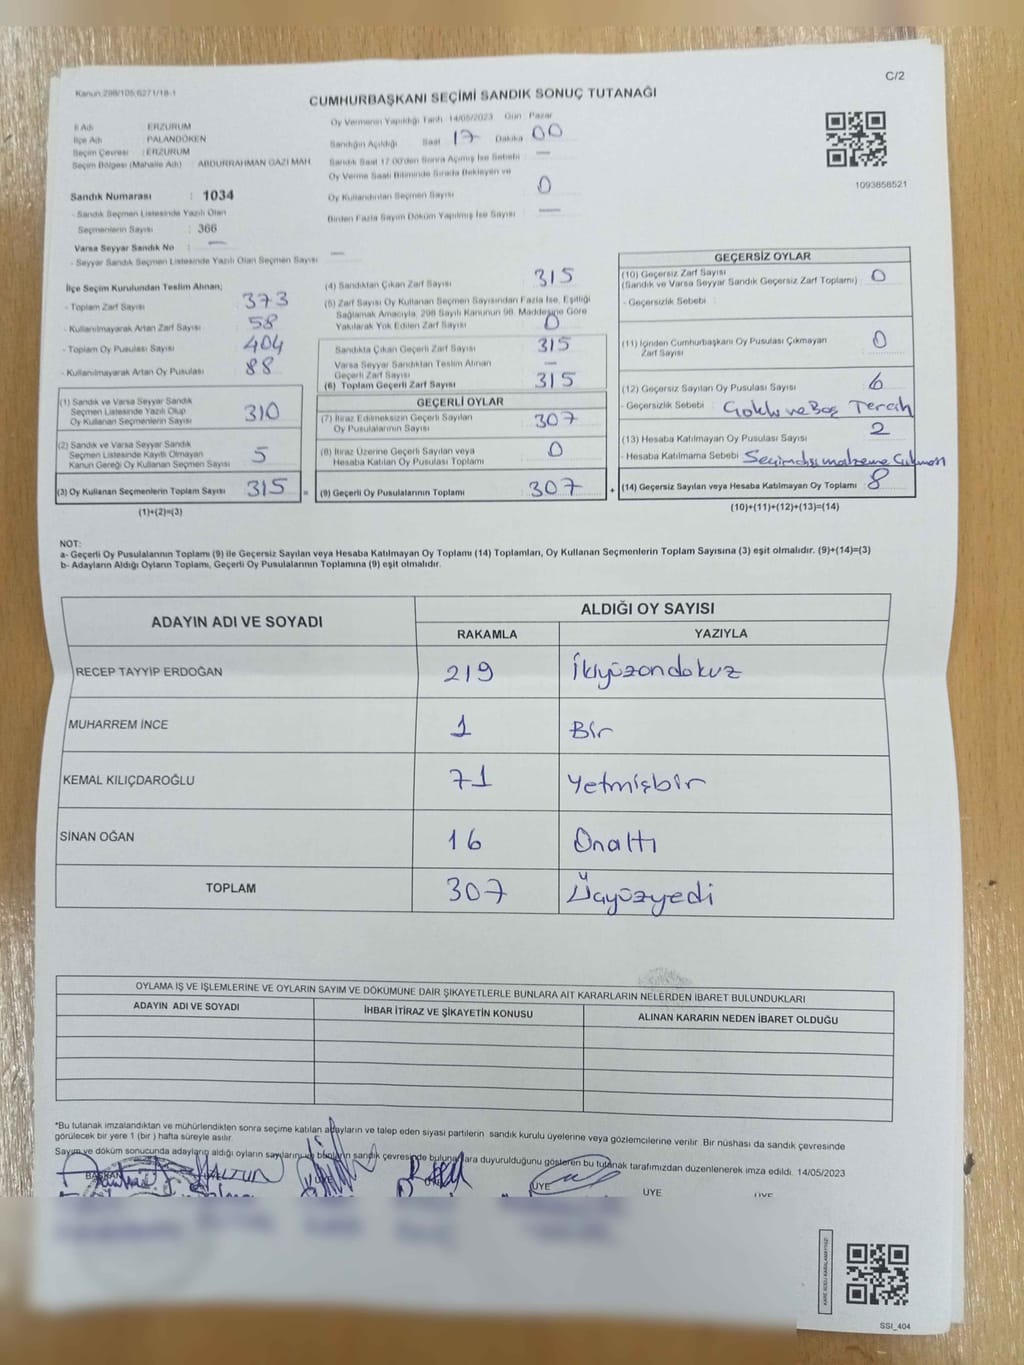 C/2
Kanun:298/105,6271/18-1
CUMHURBAŞKANI SEÇİMİ SANDIK SONUÇ TUTANAĞI
İl Adı : ERZURUM
İlçe Adı : PALANDÖKEN
Seçim Çevresi : ERZURUM
Seçim Bölgesi (Mahalle Adı) : ABDURRAHMAN GAZİ MAH
Sandık Numarası : 1034
- Sandık Seçmen Listesinde Yazılı Olan
Seçmenlerin Sayısı : 366
Varsa Seyyar Sandık No : —
- Seyyar Sandık Seçmen Listesinde Yazılı Olan Seçmen Sayısı : —
Oy Vermenin Yapıldığı Tarih : 14/05/2023 Gün : Pazar
Sandığın Açıldığı Saat 17 Dakika 00
Sandık Saat 17:00'den Sonra Açılmış İse Sebebi : —
Oy Verme Saati Bitiminde Sırada Bekleyen ve
Oy Kullandırılan Seçmen Sayısı : 0
Birden Fazla Sayım Döküm Yapılmış İse Sayısı : —
1093858521
İlçe Seçim Kurulundan Teslim Alınan;
- Toplam Zarf Sayısı : 373
- Kullanılmayarak Artan Zarf Sayısı : 58
- Toplam Oy Pusulası Sayısı : 404
- Kullanılmayarak Artan Oy Pusulası : 88
(1) Sandık ve Varsa Seyyar Sandık
Seçmen Listesinde Yazılı Olup
Oy Kullanan Seçmenlerin Sayısı : 310
(2) Sandık ve Varsa Seyyar Sandık
Seçmen Listesinde Kayıtlı Olmayan
Kanun Gereği Oy Kullanan Seçmen Sayısı : 5
(3) Oy Kullanan Seçmenlerin Toplam Sayısı : 315
(1)+(2)=(3)
(4) Sandıktan Çıkan Zarf Sayısı : 315
(5) Zarf Sayısı Oy Kullanan Seçmen Sayısından Fazla İse, Eşitliği
Sağlamak Amacıyla, 298 Sayılı Kanunun 98. Maddesine Göre
Yakılarak Yok Edilen Zarf Sayısı : 0
Sandıkta Çıkan Geçerli Zarf Sayısı : 315
Varsa Seyyar Sandıktan Teslim Alınan
Geçerli Zarf Sayısı : —
(6) Toplam Geçerli Zarf Sayısı : 315
GEÇERLİ OYLAR
(7) İtiraz Edilmeksizin Geçerli Sayılan
Oy Pusulalarının Sayısı : 307
(8) İtiraz Üzerine Geçerli Sayılan veya
Hesaba Katılan Oy Pusulası Toplamı : 0
= (9) Geçerli Oy Pusulalarının Toplamı : 307 +
GEÇERSİZ OYLAR
(10) Geçersiz Zarf Sayısı
(Sandık ve Varsa Seyyar Sandık Geçersiz Zarf Toplamı) : 0
- Geçersizlik Sebebi :
(11) İçinden Cumhurbaşkanı Oy Pusulası Çıkmayan
Zarf Sayısı : 0
(12) Geçersiz Sayılan Oy Pusulası Sayısı : 6
- Geçersizlik Sebebi : Çoklu ve Boş Tercih
(13) Hesaba Katılmayan Oy Pusulası Sayısı : 2
- Hesaba Katılmama Sebebi : Seçimdışı malzeme Çıkması
(14) Geçersiz Sayılan veya Hesaba Katılmayan Oy Toplamı : 8
(10)+(11)+(12)+(13)=(14)
NOT:
a- Geçerli Oy Pusulalarının Toplamı (9) ile Geçersiz Sayılan veya Hesaba Katılmayan Oy Toplamı (14) Toplamları, Oy Kullanan Seçmenlerin Toplam Sayısına (3) eşit olmalıdır. (9)+(14)=(3)
b- Adayların Aldığı Oyların Toplamı, Geçerli Oy Pusulalarının Toplamına (9) eşit olmalıdır.
ADAYIN ADI VE SOYADI ALDIĞI OY SAYISI
RAKAMLA YAZIYLA
RECEP TAYYİP ERDOĞAN 219 İkiyüzondokuz
MUHARREM İNCE 1 Bir
KEMAL KILIÇDAROĞLU 71 Yetmişbir
SİNAN OĞAN 16 Onaltı
TOPLAM 307 Üçyüzyedi
OYLAMA İŞ VE İŞLEMLERİNE VE OYLARIN SAYIM VE DÖKÜMÜNE DAİR ŞİKAYETLERLE BUNLARA AİT KARARLARIN NELERDEN İBARET BULUNDUKLARI
ADAYIN ADI VE SOYADI İHBAR İTİRAZ VE ŞİKAYETİN KONUSU ALINAN KARARIN NEDEN İBARET OLDUĞU
*Bu tutanak imzalandıktan ve mühürlendikten sonra seçime katılan adayların ve talep eden siyasi partilerin sandık kurulu üyelerine veya gözlemcilerine verilir. Bir nüshası da sandık çevresinde
görülecek bir yere 1 (bir) hafta süreyle asılır.
Sayım ve döküm sonucunda adayların aldığı oyların sayılarını ve bunların sandık çevresinde bulunanlara duyurulduğunu gösteren bu tutanak tarafımızdan düzenlenerek imza edildi. 14/05/2023
BAŞKAN ÜYE ÜYE ÜYE ÜYE
SSI_404